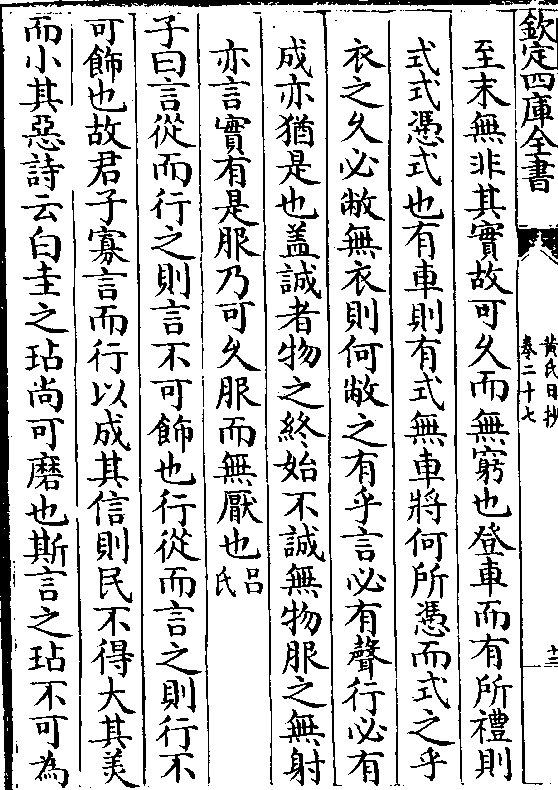 欽定四庫全書
黃氏日抄
卷二十七
十三
至末無非其實故可久而無窮也登車而有所禮則
式式憑式也有車則有式無車將何所憑而式之乎
衣之久必敝無衣則何敝之有乎言必有聲行必有
成亦猶是也蓋誠者物之終始不誠無物服之無射
亦言實有是服乃可久服而無厭也呂氏
子曰言從而行之則言不可飾也行從而言之則行不
可飾也故君子寡言而行以成其信則民不得大其美
而小其惡詩云白圭之玷尚可磨也斯言之玷不可為